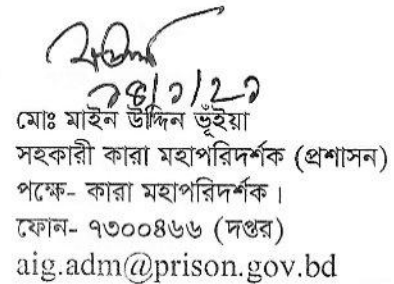 ১৪/১/২১
মোঃ মাইন উদ্দিন ভূঁইয়া
সহকারী কারা মহাপরিদর্শক (প্রশাসন)
পক্ষে- কারা মহাপরিদর্শক।
ফোন- ৭৩০০৪৬৬ (দপ্তর)
aig.adm@prison.gov.bd